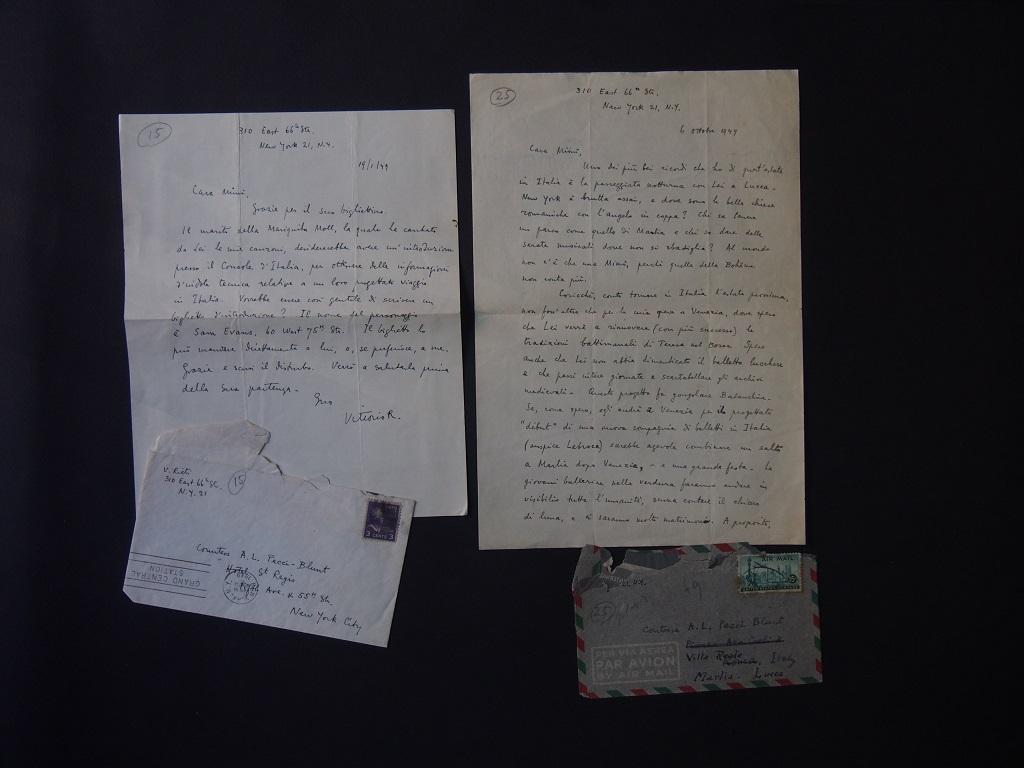 15
310 East 66th Str.
New York 21, N.Y.
19/1/49
Cara Mimì,
Grazie per il suo bigliettino.
Il marito della Mariquita Moll, la quale ha cantato
da Lei le mie canzoni, desidererebbe avere un'introduzione
presso il Console d'Italia, per ottenere delle informazioni
d'indole tecnica relative a un loro progettato viaggio
in Italia. Vorrebbe essere così gentile di scrivere un
biglietto d'introduzione? Il nome del personaggio
è Sam Evans, 60 West 75th Str. Il biglietto lo
può mandare direttamente a lui, o, se preferisce, a me.
Grazie e scusi il disturbo. Verrò a salutarla prima
della sua partenza.
Suo
Vittorio R.
V. Rieti
310 East 66th St.
N.Y. 21
15
3 CENTS
GRAND CENTRAL
STATION
Countess A. L. Pecci-Blunt
Hotel St Regis
Fifth Ave. & 55th Str.
New York City
25
310 East 66th Str.
New York 21, N.Y.
6 ottobre 1949
Cara Mimì,
Uno dei più bei ricordi che ho di quest'estate
in Italia è la passeggiata notturna con Lei a Lucca.
New York è brutta assai, e dove sono le belle chiese
romaniche con l'angelo in coppa? Chi sa tenere
un parco come quello di Marlia e chi sa dare delle
serate musicali dove non si sbadiglia? Al mondo
non c'è che una Mimì, perchè quella della Bohème
non conta più.
Cosicchè, conto tornare in Italia l'estate prossima,
non foss'altro che per la mia opera a Venezia, dove spero
che Lei verrà a rinnovare (con più successo) le
tradizioni battimanali di Teresa nel Bosco. Spero
anche che Lei non abbia dimenticato il balletto lucchese
e che passi intere giornate a scartabellare gli archivi
medievali. Questo progetto fa gongolare Balanchine.
Se, come spero, egli andrà a Venezia per il progettato
"début" di una nuova compagnia di balletti in Italia
(auspice Labroca) sarebbe agevole combinare un salto
a Marlia dopo Venezia, — e una grande festa. Le
giovani ballerine nella verdura faranno andare in
visibilio tutta l'umanità, senza contare il chiaro
di luna, e ci saranno molti matrimoni. A proposito,
AIR MAIL
25
PER VIA AEREA
PAR AVION
BY AIR MAIL
Contessa A. L. Pecci Blunt
Villa Reale
Italy
Marlia Lucca